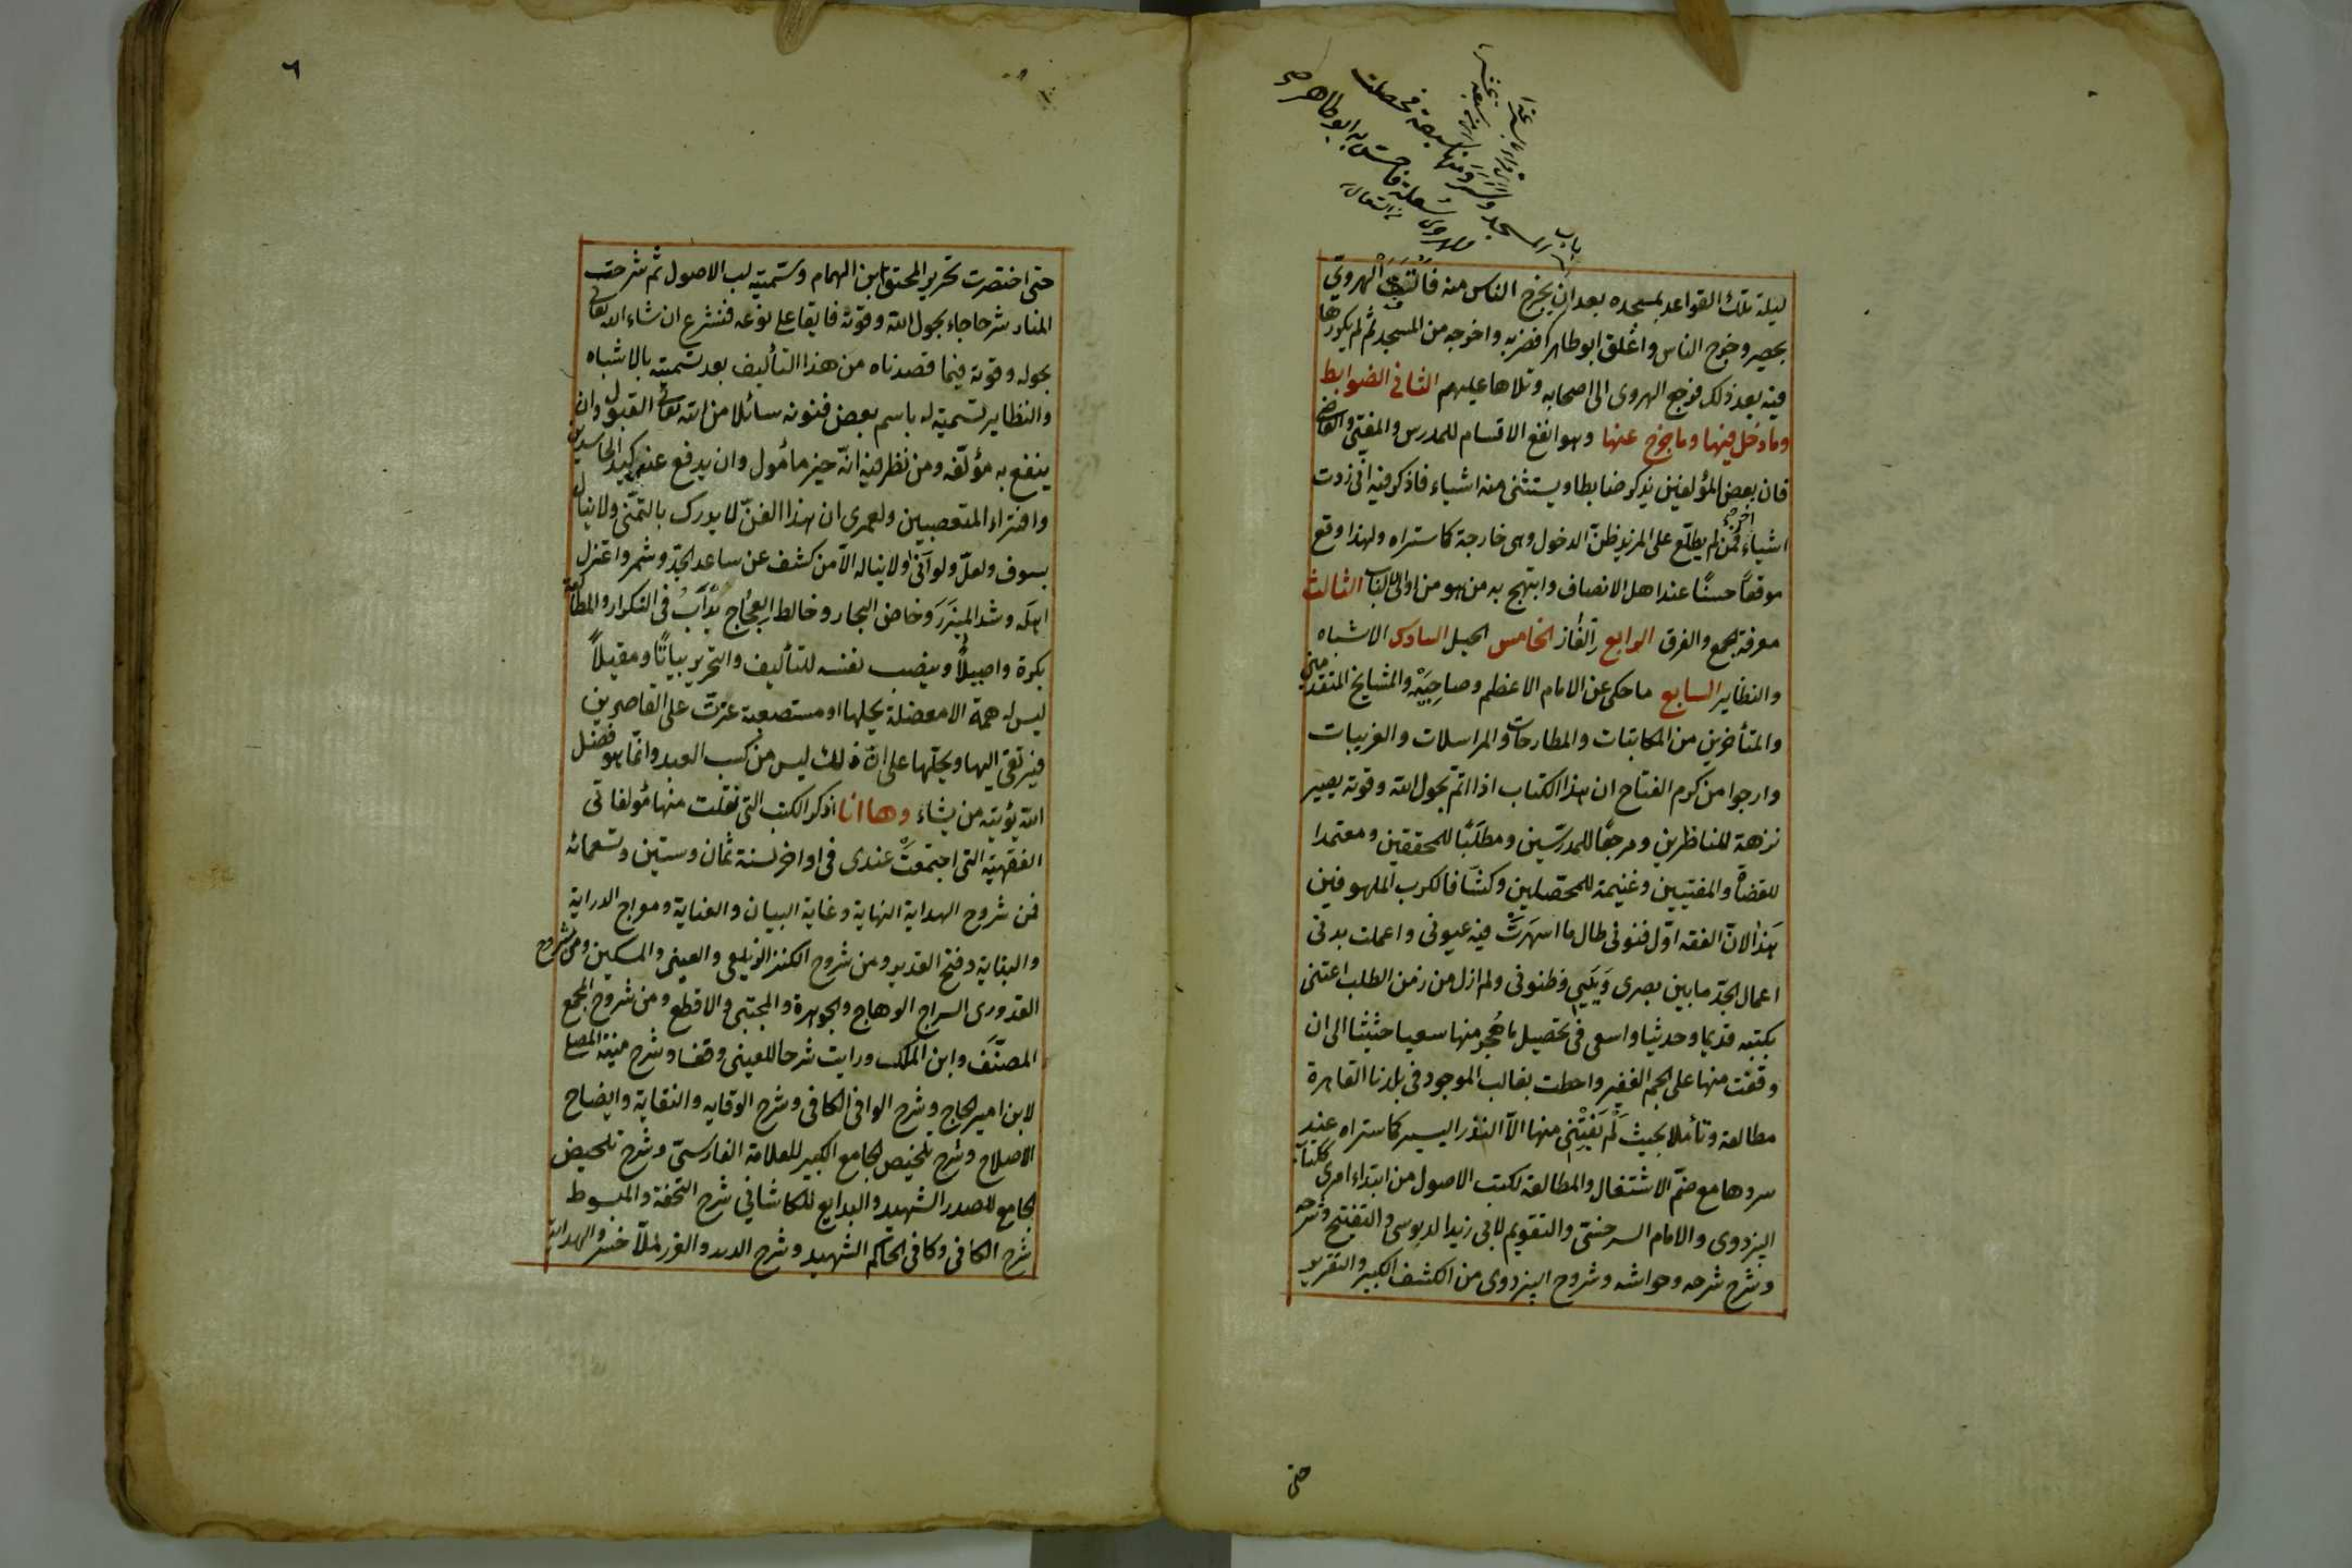 باب
المسجد وسرد منها سبعة فحصلت
للهروى سعلة فاحس به ابو طاهر
ليلة تلك القواعد بمسجده بعد ان يخرج الناس منه فالتف الهروي
بحصير وخرج الناس واغلق ابو طاهر فضربه واخرجه من المسجد ثم لم يكررها
فيه بعد ذلك فرجع الهروى الى اصحابه وتلاها عليهم الثانى الضوابط
وما دخل فيها وما خرج عنها وهو انفع الاقسام للمدرس والمفتى والقاضى
فان بعض المؤلفين يذكر ضابطا ويستثنى منه اشياء فاذكر فيه انى زدت
اشياء اخر فمن لم يطلع على المزيد ظن الدخول وهى خارجة كما ستراه ولهذا وقع
موقعاً حسنًا عند اهل الانصاف وابتهج به من هو من اولى الالباب الثالث
معرفة الجمع والفرق الرابع الغاز الخامس الحيل السادس الاشباه
والنظاير السابع ما حكى عن الامام الاعظم وصاحبيه والمشايخ المتقدمين
والمتأخرين من المكاتبات والمطارحات والمراسلات والغريبات
وارجوا من كرم الفتاح ان هذا الكتاب اذا تم بحول الله وقوته يصير
نزهة للناظرين ومرجعًا للمدرسين ومطلبًا للمحققين ومعتمدا
للقضاة والمفتيين وغنيمة للمحصلين وكشافا لكرب الملهوفين
هذا لان الفقه اول فنونى طال ما اسهرت فيه عيونى واعملت بدنى
اعمال الجد ما بين بصرى ويدى وظنونى ولم ازل من زمن الطلب اعتنى
بكتبه قديما وحديثا واسعى فى تحصيل ما هجر منها سعيا حثيثا الى ان
وقفت منها على الجم الغفير واحطت بغالب الموجود فى بلدنا القاهرة
مطالعة وتأملا بحيث لم يفتنى منها الا النزر اليسير كما ستراه عند
سردها مع ضم الاشتغال والمطالعة لكتب الاصول من ابتداء امرى ككتاب
البزدوى والامام السرخسى والتقويم لابى زيد الدبوسى والتنقيح وشرحه
وشرح شرحه وحواشه وشروح البزدوى من الكشف الكبير والتقرير
حتى
٦
حتى اختصرت تحرير المحقق ابن الهمام وسميته لب الاصول ثم شرحت
المنار شرحا جاء بحول الله وقوته فايقا على نوعه فنشرع ان شاء الله تعالى
بحوله وقوته فيما قصدناه من هذا التأليف بعد تسميته بالاشباه
والنظاير تسمية له باسم بعض فنونه سائلا من الله تعالى القبول وان
ينفع به مؤلفه ومن نظر فيه انه خير مأمول وان يدفع عنه كيد الحاسدين
وافتراء المتعصبين ولعمرى ان هذا الفن لا يدرك بالتمنى ولا ينال
بسوف ولعل ولو انى ولا يناله الا من كشف عن ساعد الجد وشمر واعتزل
اهله وشد الميزر وخاض البحار وخالط العجاج يدأب فى التكرار والمطالعة
بكرة واصيلاً وينصب نفسه للتأليف والتحرير بياتًا ومقيلاً
ليس له همة الا معضلة يحلها او مستصعبة عزت على القاصرين
فيرتقى اليها ويحلها على ان ذلك ليس من كسب العبد وانما هو فضل
الله يؤتيه من يشاء وها انا اذكر الكتب التى نقلت منها مؤلفاتى
الفقهية التى اجتمعت عندى فى اواخر سنة ثمان وستين وتسعمائه
فمن شروح الهداية النهاية وغاية البيان والعناية ومعراج الدراية
والبناية وفتح القدير ومن شروح الكنز الزيلعى والعينى والمسكين ومن شروح
القدورى السراج الوهاج والجوهرة والمجتبى والاقطع ومن شروح المجمع
المصنف وابن الملك ورايت شرحا للعينى وقفا وشرح منية المصلى
لابن امير الحاج وشرح الوافى الكافى وشرح الوقايه والنقاية وايضاح
الاصلاح وشرح تلخيص الجامع الكبير للعلامة الفارسى وشرح تلخيص
الجامع للصدر الشهيد والبدايع للكاشانى شرح التحفة والمبسوط
شرح الكافى وكافى الحاكم الشهيد وشرح الدرر والغرر لملا خسر والهداية